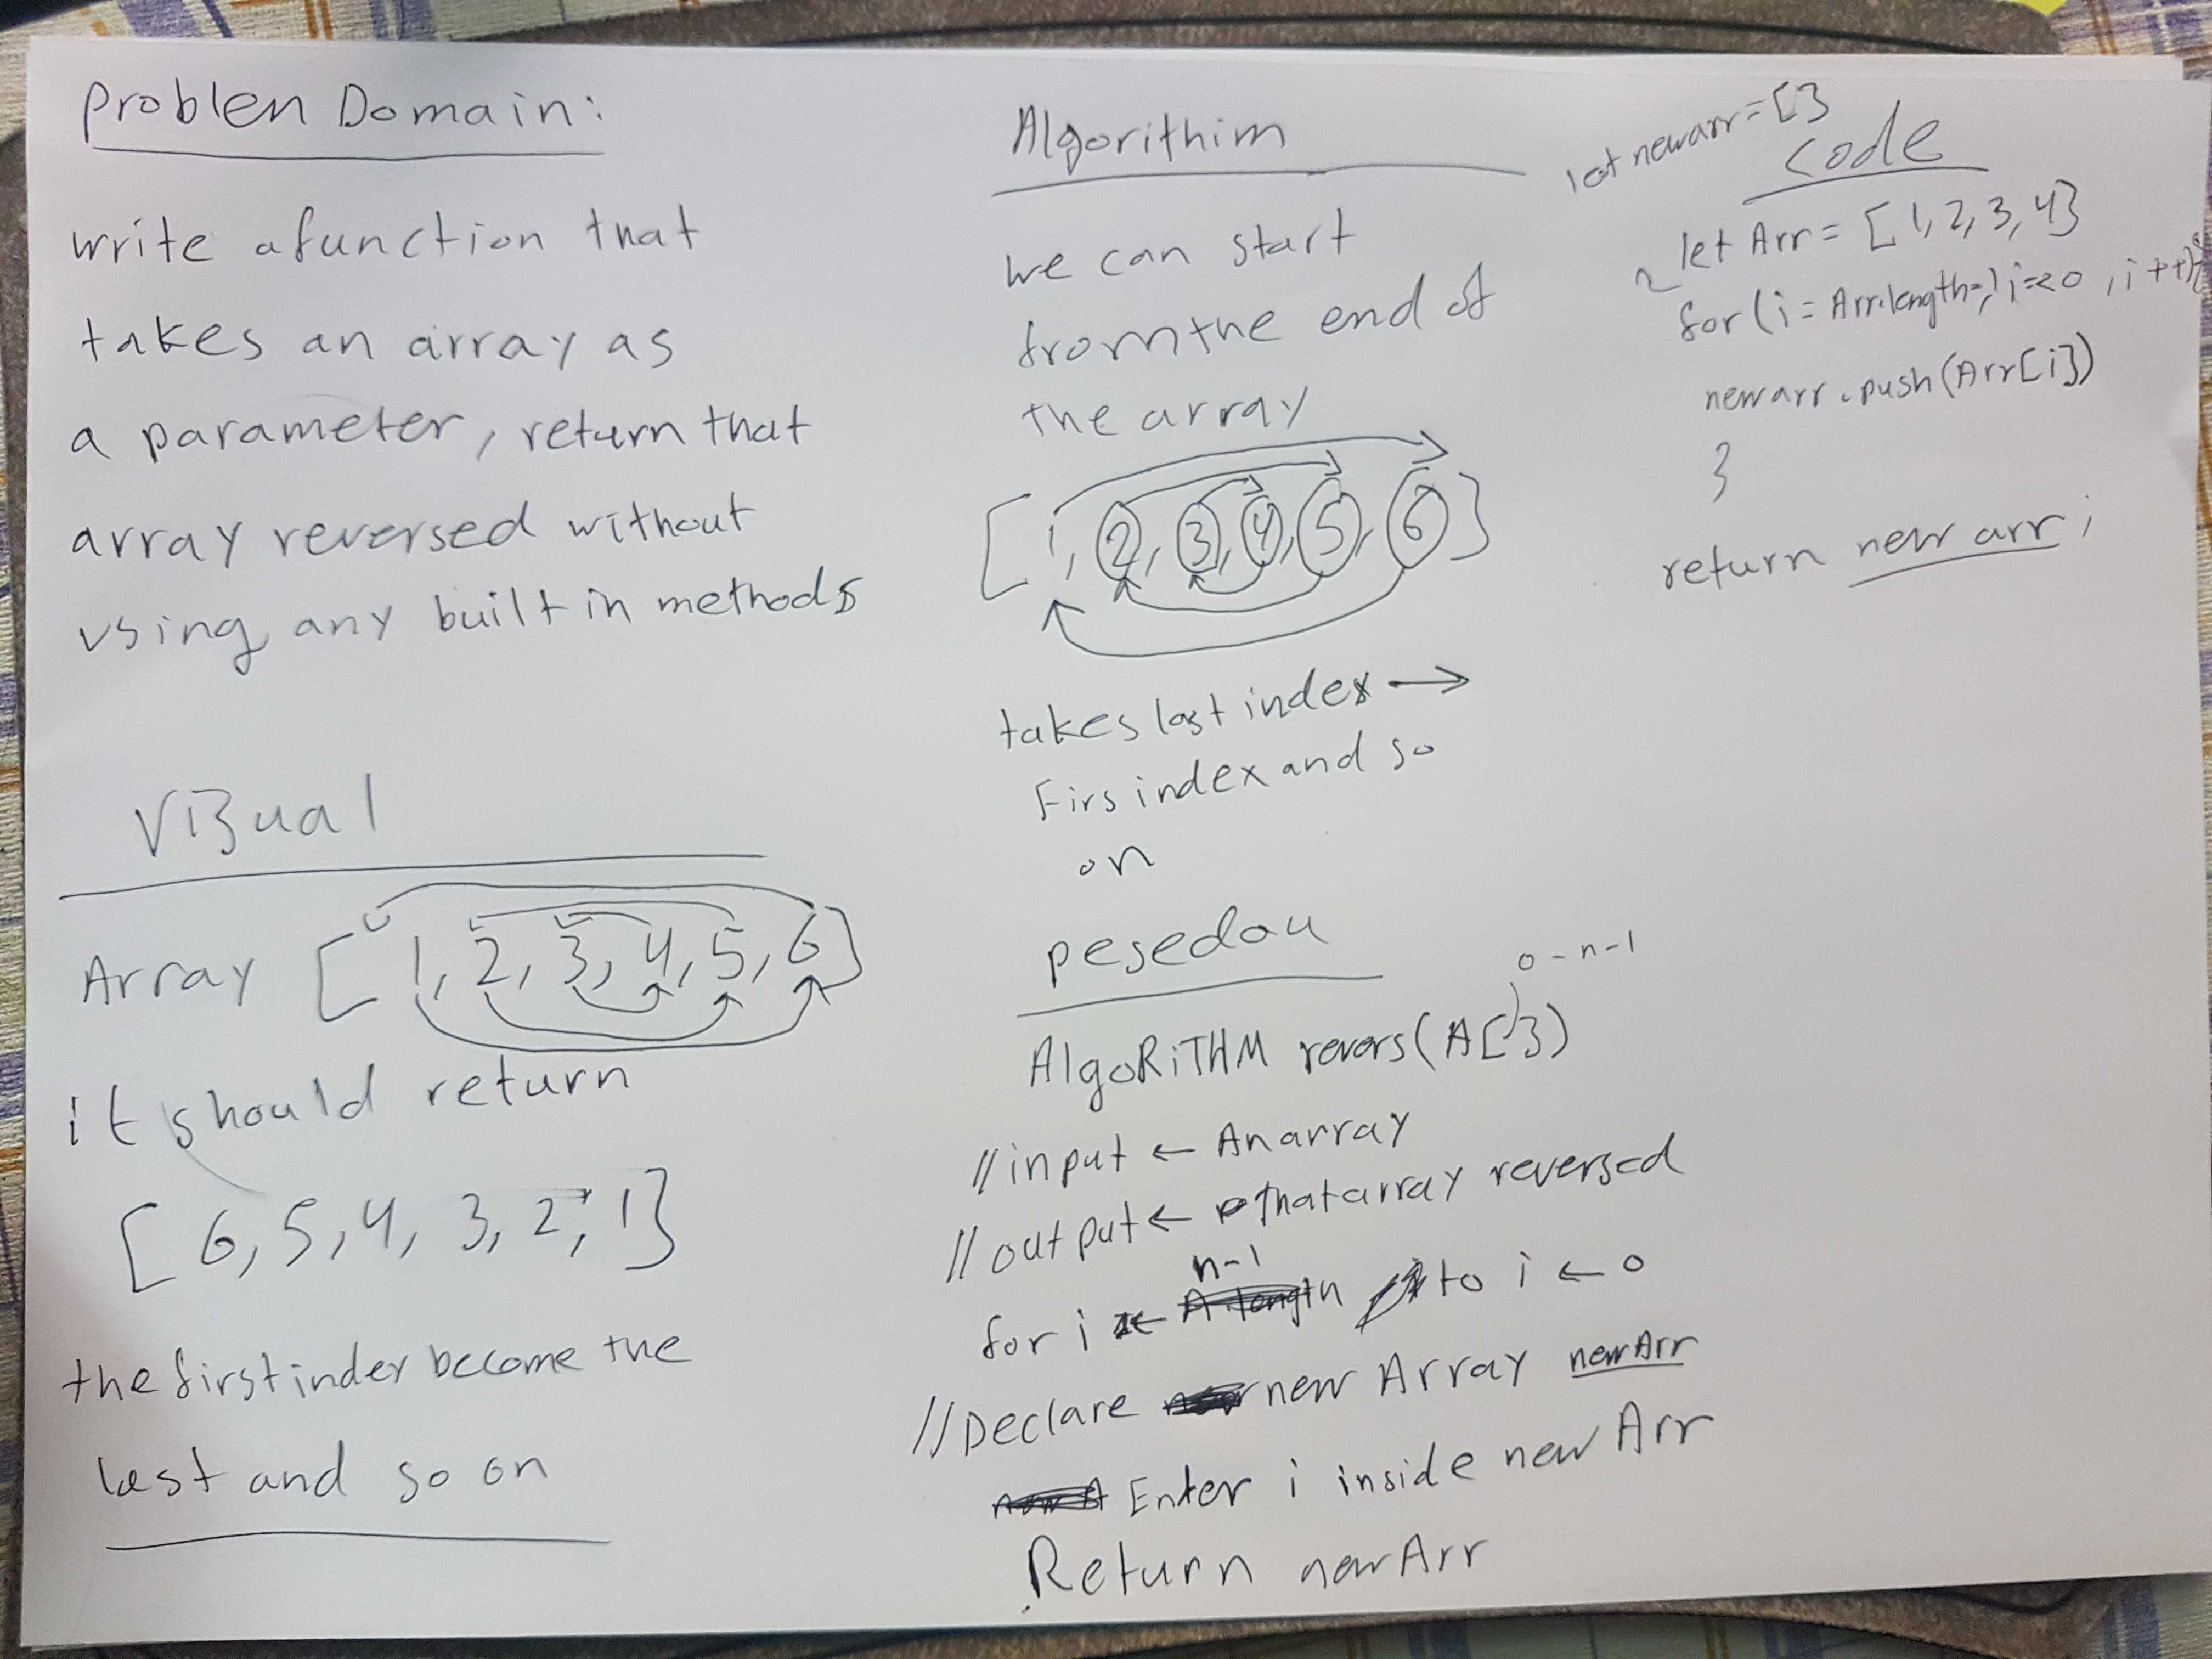 Problen Domain:
write a function that
takes an array as
a parameter, return that
array reversed without
using any built in methods
Vizual
Array [1, 2, 3, 4, 5, 6]
it should return
[6, 5, 4, 3, 2, 1]
the first inder become the
last and so on
Algorithim
we can start
from the end of
the array
[1, 2, 3, 4, 5, 6]
takes last index →
Firs index and so
on
pesedou
0 - n-1
AlgoRiTHM revers(A[])
//input ← An array
//output ← that array reversed
n-1
for i ← to i ← 0
//Declare new Array newArr
Enter i inside new Arr
Return newArr
let newarr = []
Code
let Arr = [1, 2, 3, 4]
for (i = Arr.length i=<0 , i++){
newarr.push(Arr[i])
}
return new arr;